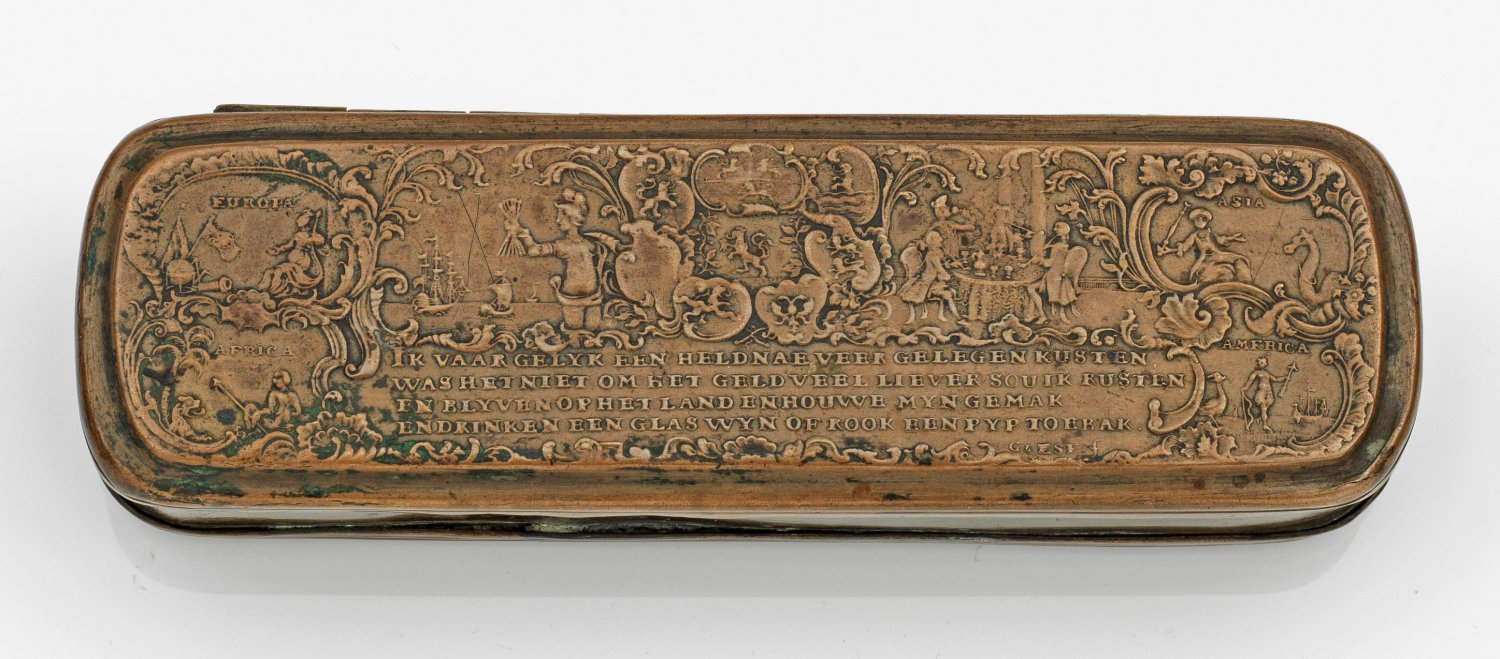 EUROPA
ASIA
AFRICA
AMERICA
IK VAAR GELYK EEN HELD NAE VEER GELEGEN KUSTEN
WAS HET NIET OM HET GELD VEEL LIEVER SOU IK RUSTEN
EN BLYVEN OP HET LAND EN HOUWE MYN GEMAK
EN DRINKEN EEN GLAS WYN OF ROOK EEN PYP TOEBAK